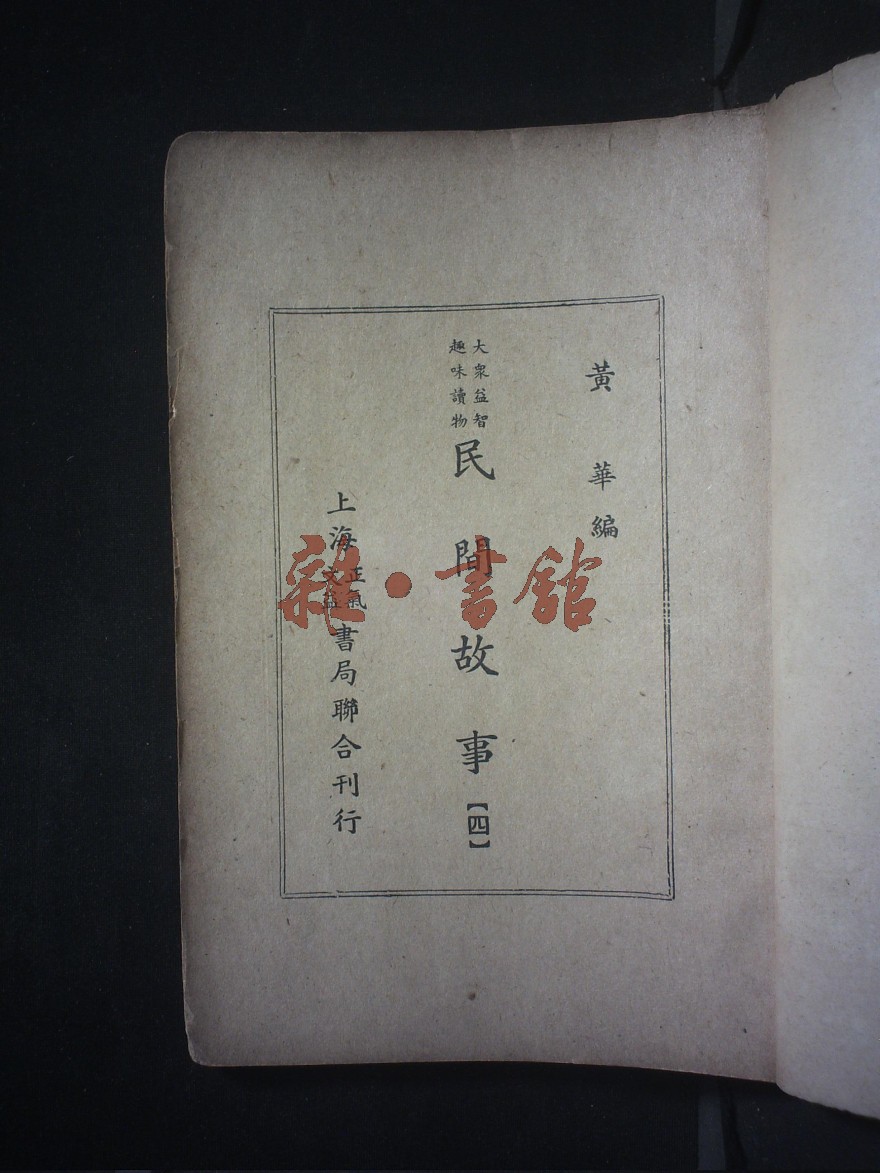 黃華編
大衆益智
趣味讀物
民間故事【四】
上海
正氣
文益
書局聯合刊行
雜·書館